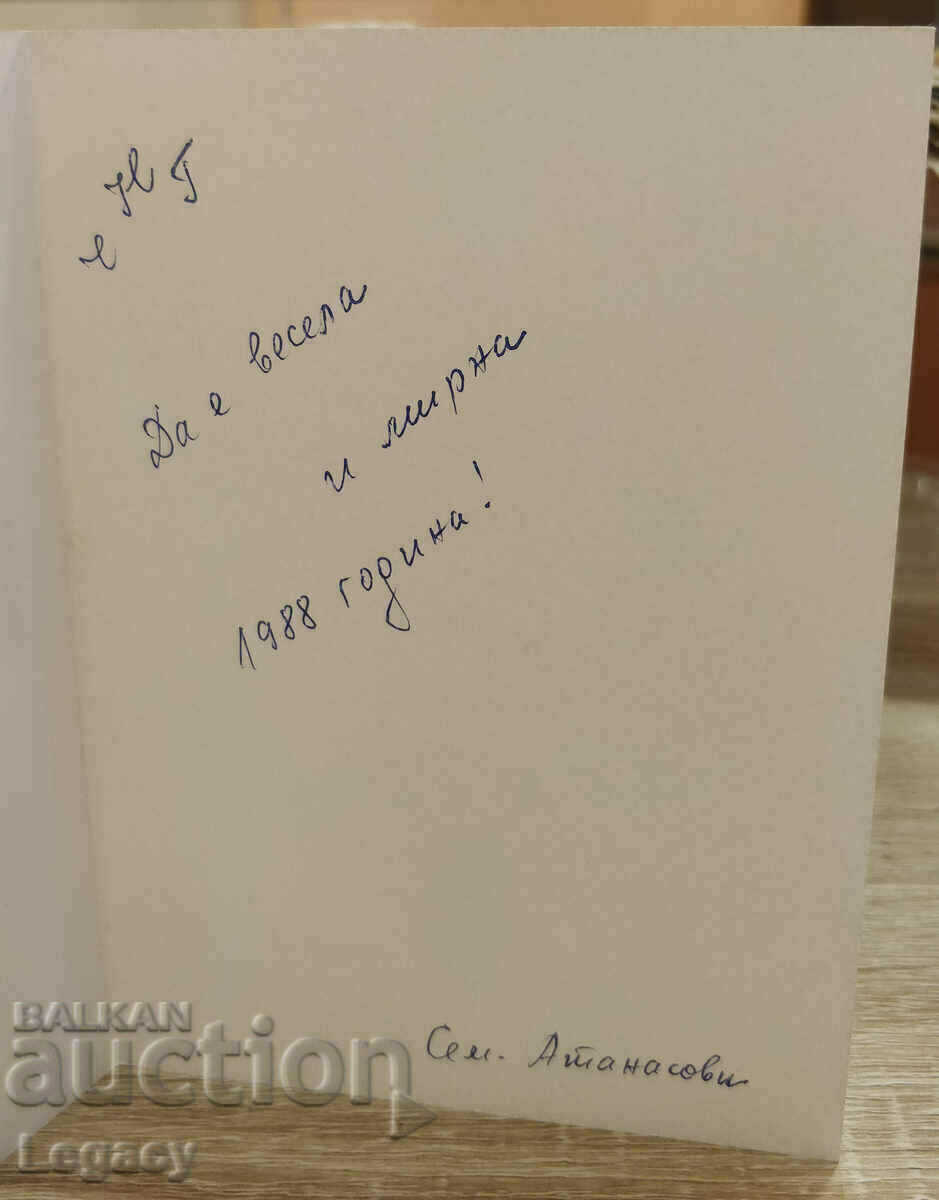 ЧНГ
Да е весела
и мирна
1988 година!
Сем. Атанасови
BALKAN
auction
Legacy